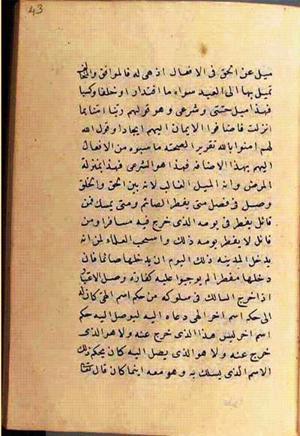 43
ميل عن الحق في الافعال اذ هي له فالموافق والمخالف
تميل بها الى العبيد سواء ما اقتدارا وخلقا وكسبا
فهذا ميل حسّي وشرعي وهو قولهم ربنا امنا بما
انزلت فاضافوا الايمان اليهم ايجادا وقول الله
لهم امنوا بالله تقريرا لصحة ما نسبوه من الافعال
اليهم بهذا الاضافة فهذا هو الشرعي فهذا بمنزلة
المرض وانه الميل الغالب لانه بين الحق والخلق
وصل في فصل متى يفطر الصائم ومتى يمسك فمن
قائل يفطر في يومه الذي خرج فيه مسافرا ومن
قائل لا يفطر يومه ذلك واستحب العلماء لمن انه
يدخل المدينة ذلك اليوم ان يدخلها صائما فان
دخلها مفطرا لم يوجبوا عليه كفارة وصل الاعتبار
اذا خرج السالك في سلوكه من حكم اسم الهي كان له
الى حكم اسم اخر الهي دعاه اليه ليوصله اليه حكم
اسم اخر ليس هذا الذي خرج عنه ولا هو الذي
خرج عنه ولا هو الذي يصل اليه كان بحكم ذلك
الاسم الذي يسلك به وهو معه اينما كان قال تعالى